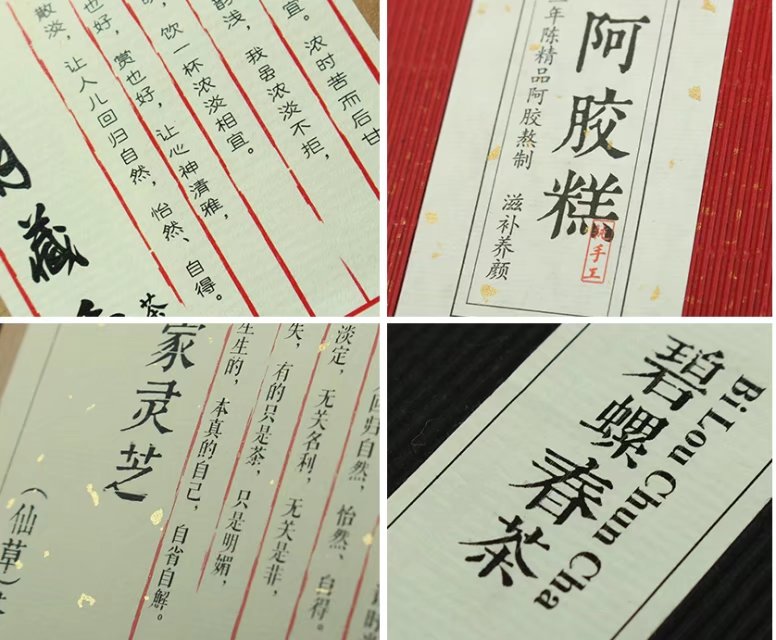 宜。浓时苦而后甘
浅，我虽浓淡不拒，
饮一杯浓淡相宜。
也好，赏也好，让心神清雅，
散淡，让人儿回归自然，怡然、自得。
茶
藏
阿胶糕
纯手工
年陈精品阿胶熬制 滋补养颜
回归自然，怡然、自得。
淡定，无关名利，无关是非，
失，有的只是茶，只是明媚，
生生的，本真的自己，自省自解。
家灵芝
（仙草）
Bi Lou Chun Cha
碧螺春茶